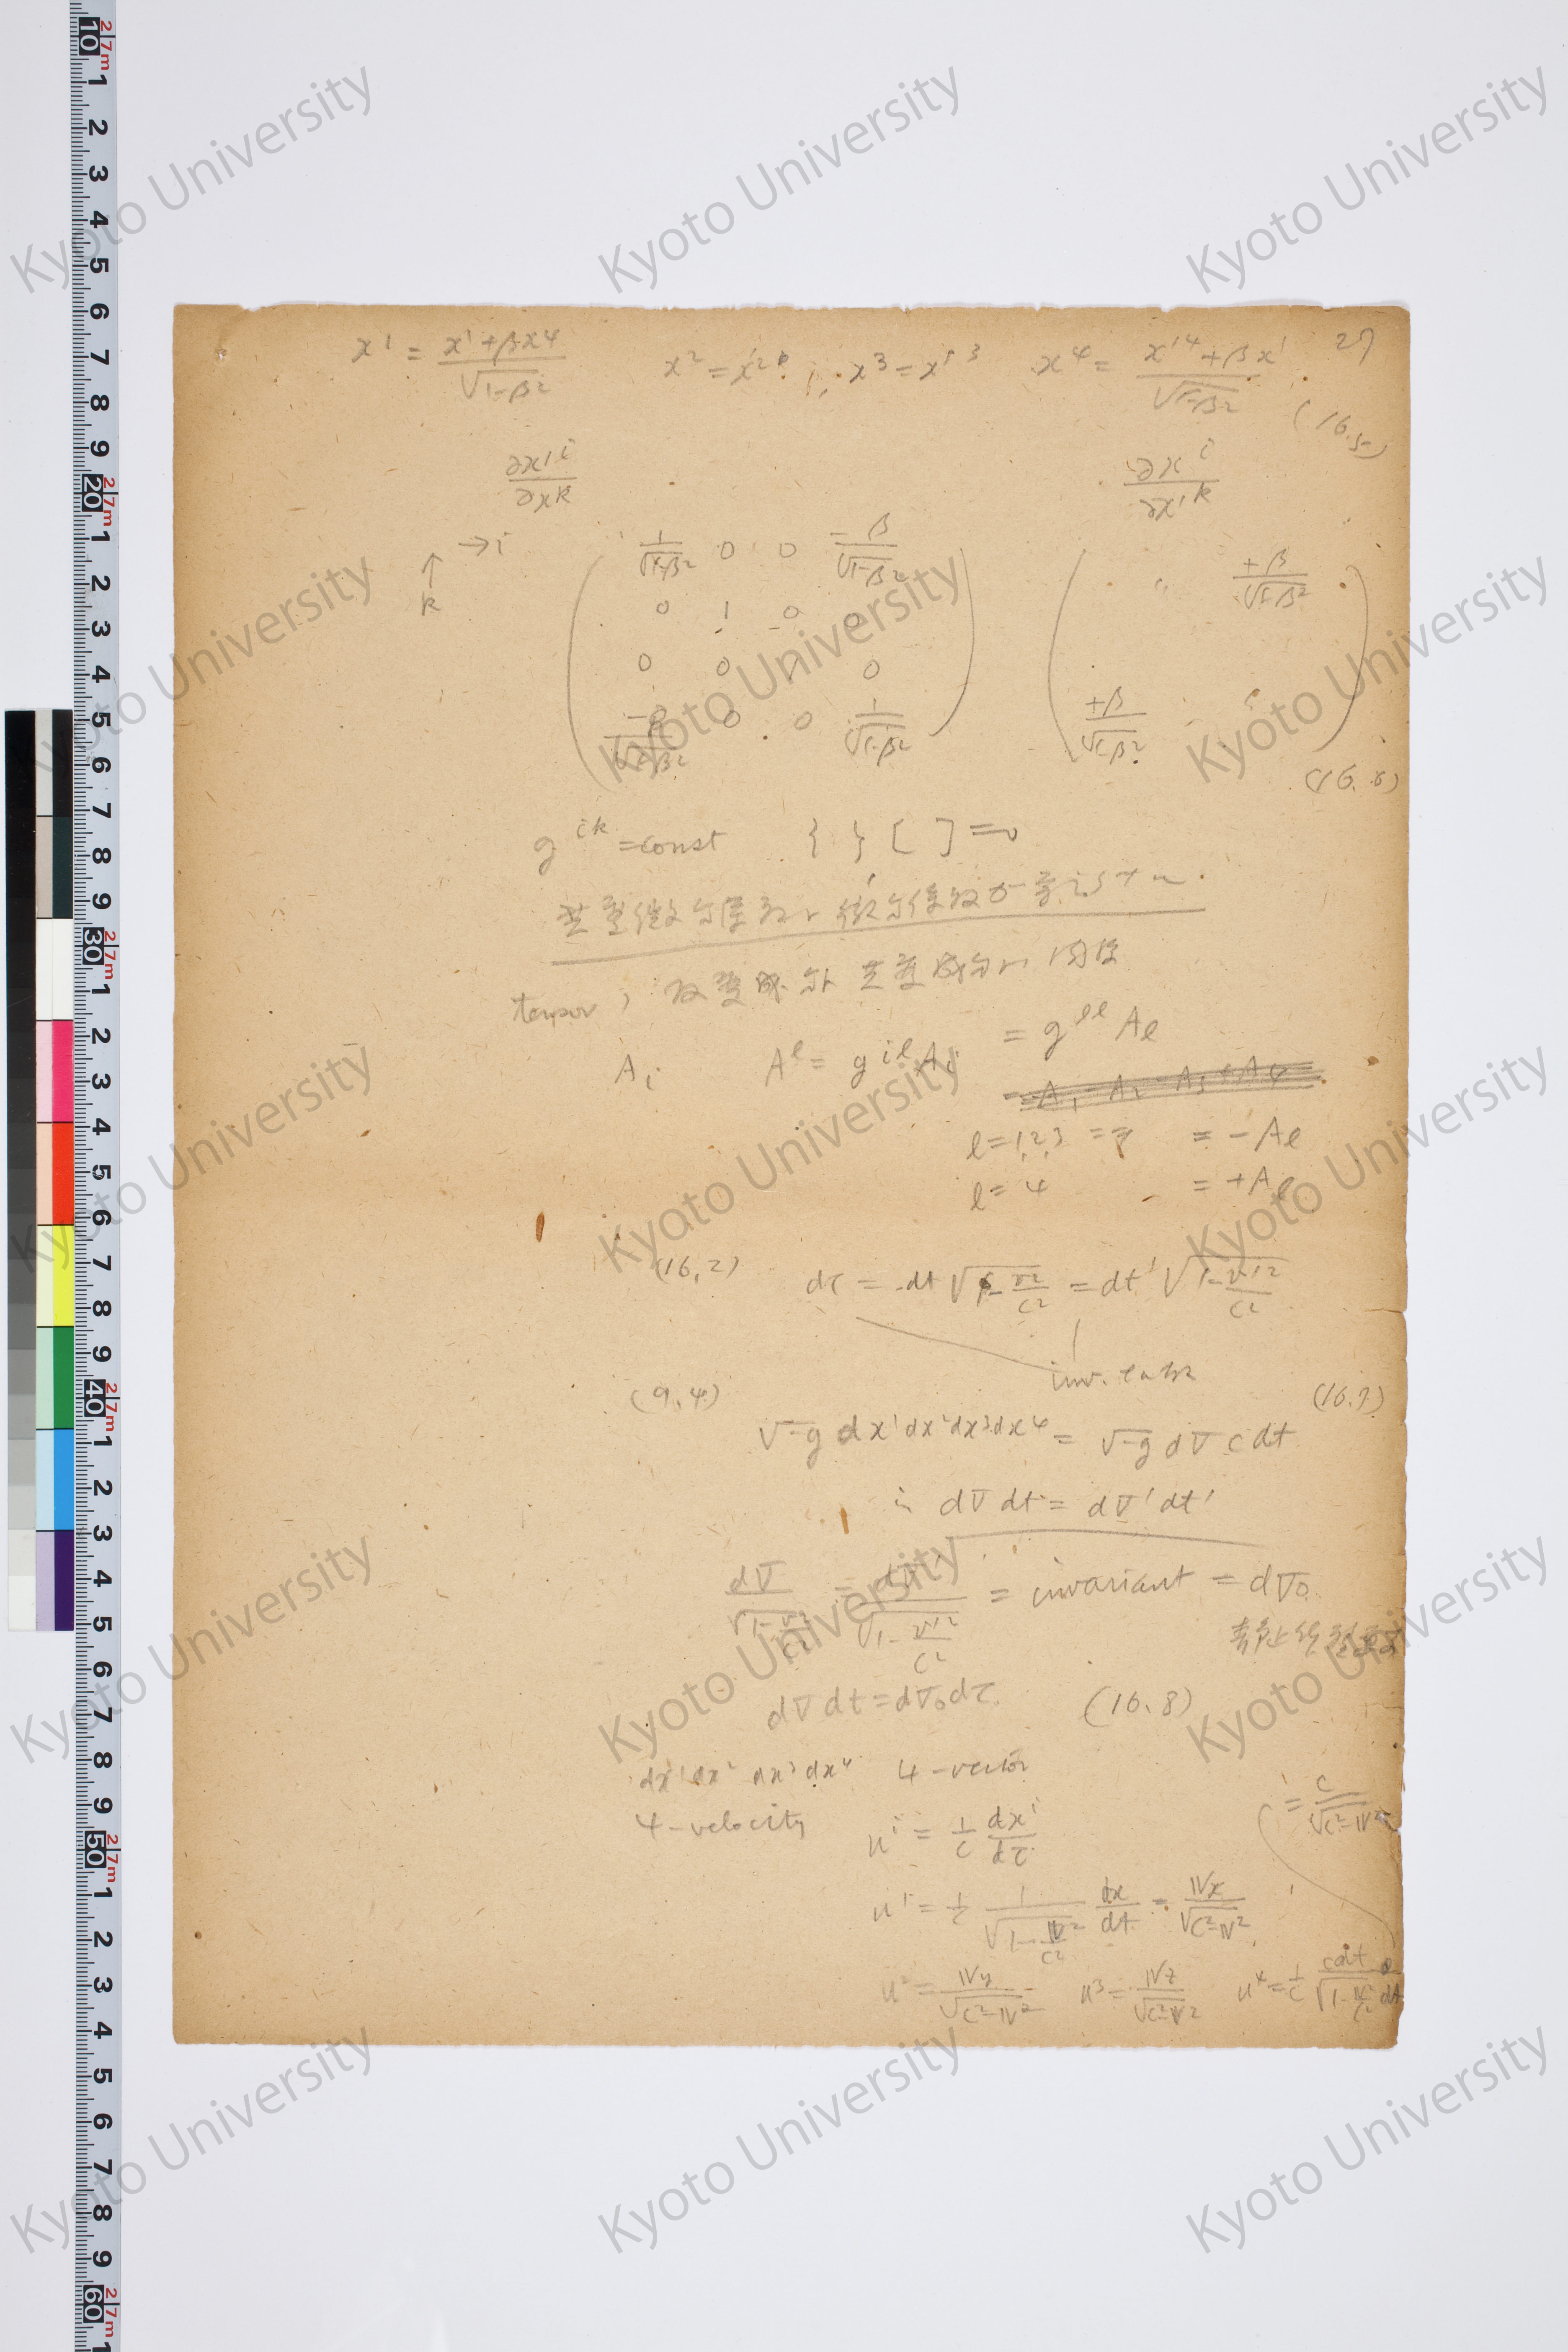 27
x¹ = (x¹ + βx⁴)/√(1-β²) x² = x'² , x³ = x'³ x⁴ = (x'⁴ + βx¹)/√(1-β²)
(16.5)
∂x'ⁱ/∂xᵏ ∂xⁱ/∂x'ᵏ
→i
↑
k
1/√(1-β²) 0 0 -β/√(1-β²) 〃 +β/√(1-β²)
0 1 0 0
0 0 1 0
-β/√(1-β²) 0 0 1/√(1-β²) +β/√(1-β²) 〃
(16.6)
gⁱᵏ = const { } [ ] = 0
共変微分
tensor 反変成分 共変成分 関係
Aᵢ Aˡ = gⁱˡAᵢ = gˡˡ Aₗ
= -A₁ - A₂ - A₃ + A₄
l = 1,2,3 = - Aₗ
l = 4 = + Aₗ
(16,2) dτ = dt √(1 - v²/c²) = dt' √(1 - v'²/c²)
inv.
(9.4) (16.7)
√-g dx¹dx²dx³dx⁴ = √-g dV c dt
∴ dV dt = dV' dt'
dV/√(1 - v²/c²) = dV'/√(1 - v'²/c²) = invariant = dV₀
dV dt = dV₀ dτ (16.8)
dx¹ dx² dx³ dx⁴ 4-vector
4-velocity uⁱ = 1/c dxⁱ/dτ
= c/√(c²-v²)
u¹ = 1/c 1/√(1 - v²/c²) dx/dt = vx/√(c²-v²)
u² = vy/√(c²-v²) u³ = vz/√(c²-v²) u⁴ = 1/c cdt/√(1 - v²/c²) dt